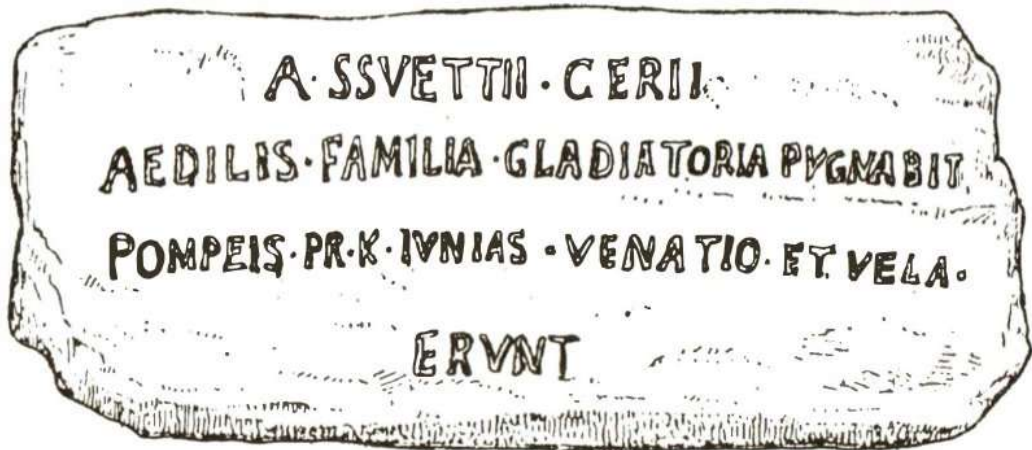 A·SSVETTII·CERII
AEDILIS·FAMILIA·GLADIATORIA PVGNABIT
POMPEIS·PR·K·IVNIAS·VENATIO·ET VELA·
ERVNT